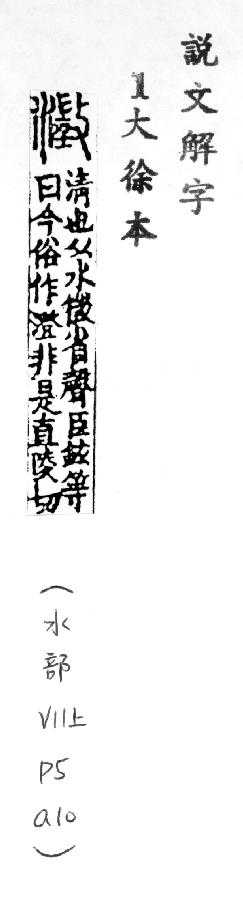 説文解字
1大徐本
澂
清也从水徵省聲臣鉉等
曰今俗作澄非是直陵切
(水部 V11上 P5 a10)